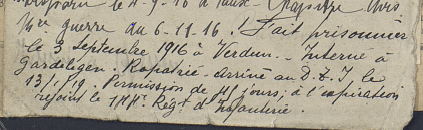 le 4-9-16 à
Mre guerre du 6-11-16 ! Fait prisonnier
le 3 Septembre 1916 à Verdun. - Interné à
Gardelegen. Rapatrié - arrivé au D.T.I, le
13/1/19. Permission de 45 jours; à l'expiration
rejoint le 144e Régt d'Infanterie.